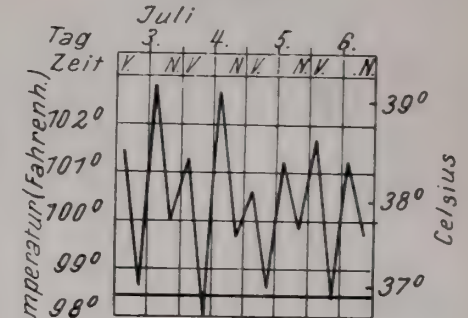 Juli
Tag 3. 4. 5. 6.
Zeit V. N. V N V. N. V. N.
mperatur (Fahrenh.)
102°
101°
100°
99°
98°
39°
38°
37°
Celsius